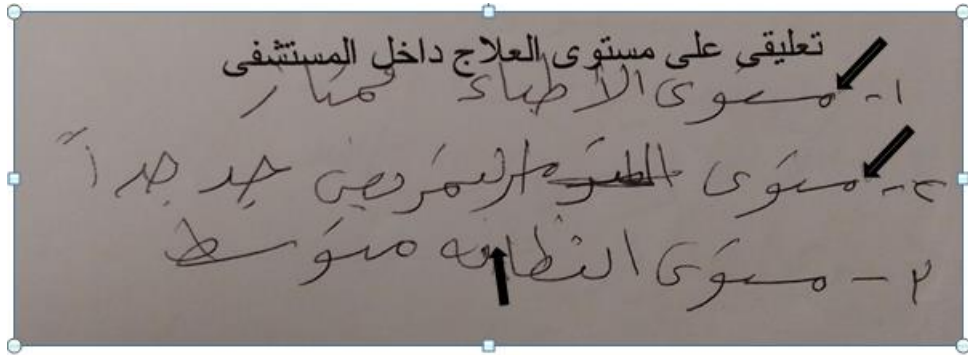 تعليقى على مستوى العلاج داخل المستشفى
١- مستوى الأطباء ممتاز
٢- مستوى التمريض جيد جداً
٣- مستوى النظافه متوسط